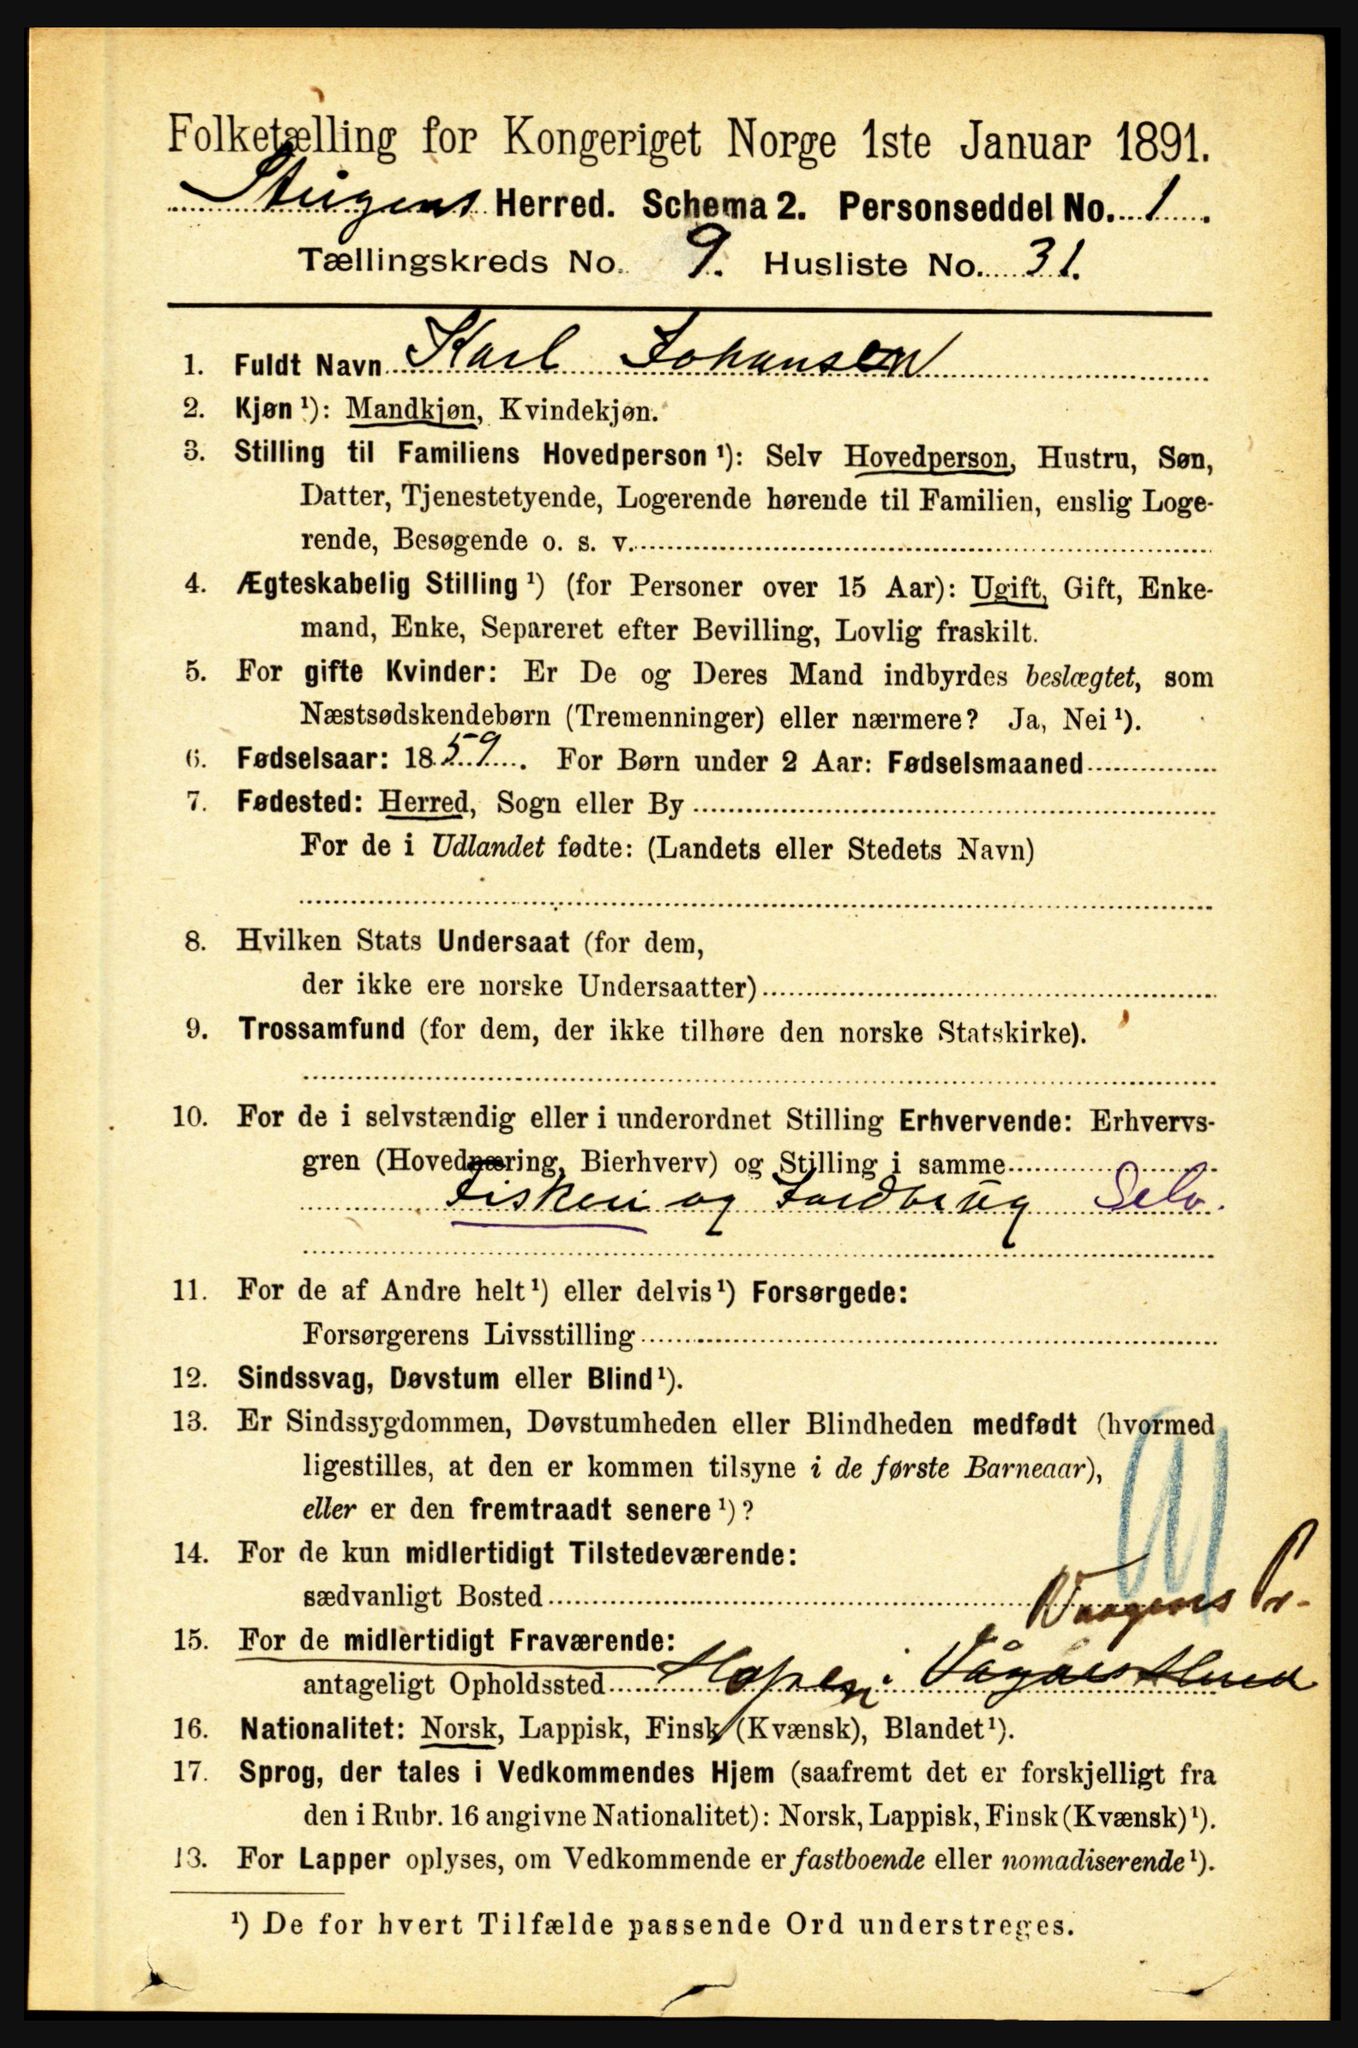 Folketælling for Kongeriget Norge 1ste Januar 1891.
Steigens Herred. Schema 2. Personseddel No. 1.
Tællingskreds No. 9. Husliste No. 31.
1. Fuldt Navn Karl Johansen
2. Kjøn ¹): Mandkjøn, Kvindekjøn.
3. Stilling til Familiens Hovedperson ¹): Selv Hovedperson, Hustru, Søn,
Datter, Tjenestetyende, Logerende hørende til Familien, enslig Loge-
rende, Besøgende o. s. v.
4. Ægteskabelig Stilling ¹) (for Personer over 15 Aar): Ugift, Gift, Enke-
mand, Enke, Separeret efter Bevilling, Lovlig fraskilt.
5. For gifte Kvinder: Er De og Deres Mand indbyrdes beslægtet, som
Næstsødskendebørn (Tremenninger) eller nærmere? Ja, Nei ¹).
6. Fødselsaar: 1859. For Børn under 2 Aar: Fødselsmaaned
7. Fødested: Herred, Sogn eller By
For de i Udlandet fødte: (Landets eller Stedets Navn)
8. Hvilken Stats Undersaat (for dem,
der ikke ere norske Undersaatter)
9. Trossamfund (for dem, der ikke tilhøre den norske Statskirke).
10. For de i selvstændig eller i underordnet Stilling Erhvervende: Erhvervs-
gren (Hovednæring, Bierhverv) og Stilling i samme
Fiskeri og Jordbrug Selv.
11. For de af Andre helt ¹) eller delvis ¹) Forsørgede:
Forsørgerens Livsstilling
12. Sindssvag, Døvstum eller Blind ¹).
13. Er Sindssygdommen, Døvstumheden eller Blindheden medfødt (hvormed
ligestilles, at den er kommen tilsyne i de første Barneaar),
eller er den fremtraadt senere ¹)?
14. For de kun midlertidigt Tilstedeværende:
sædvanligt Bosted
Vaagens Pr.
15. For de midlertidigt Fraværende:
antageligt Opholdssted Hopen i
16. Nationalitet: Norsk, Lappisk, Finsk (Kvænsk), Blandet ¹).
17. Sprog, der tales i Vedkommendes Hjem (saafremt det er forskjelligt fra
den i Rubr. 16 angivne Nationalitet): Norsk, Lappisk, Finsk (Kvænsk) ¹).
13. For Lapper oplyses, om Vedkommende er fastboende eller nomadiserende ¹).
¹) De for hvert Tilfælde passende Ord understreges.